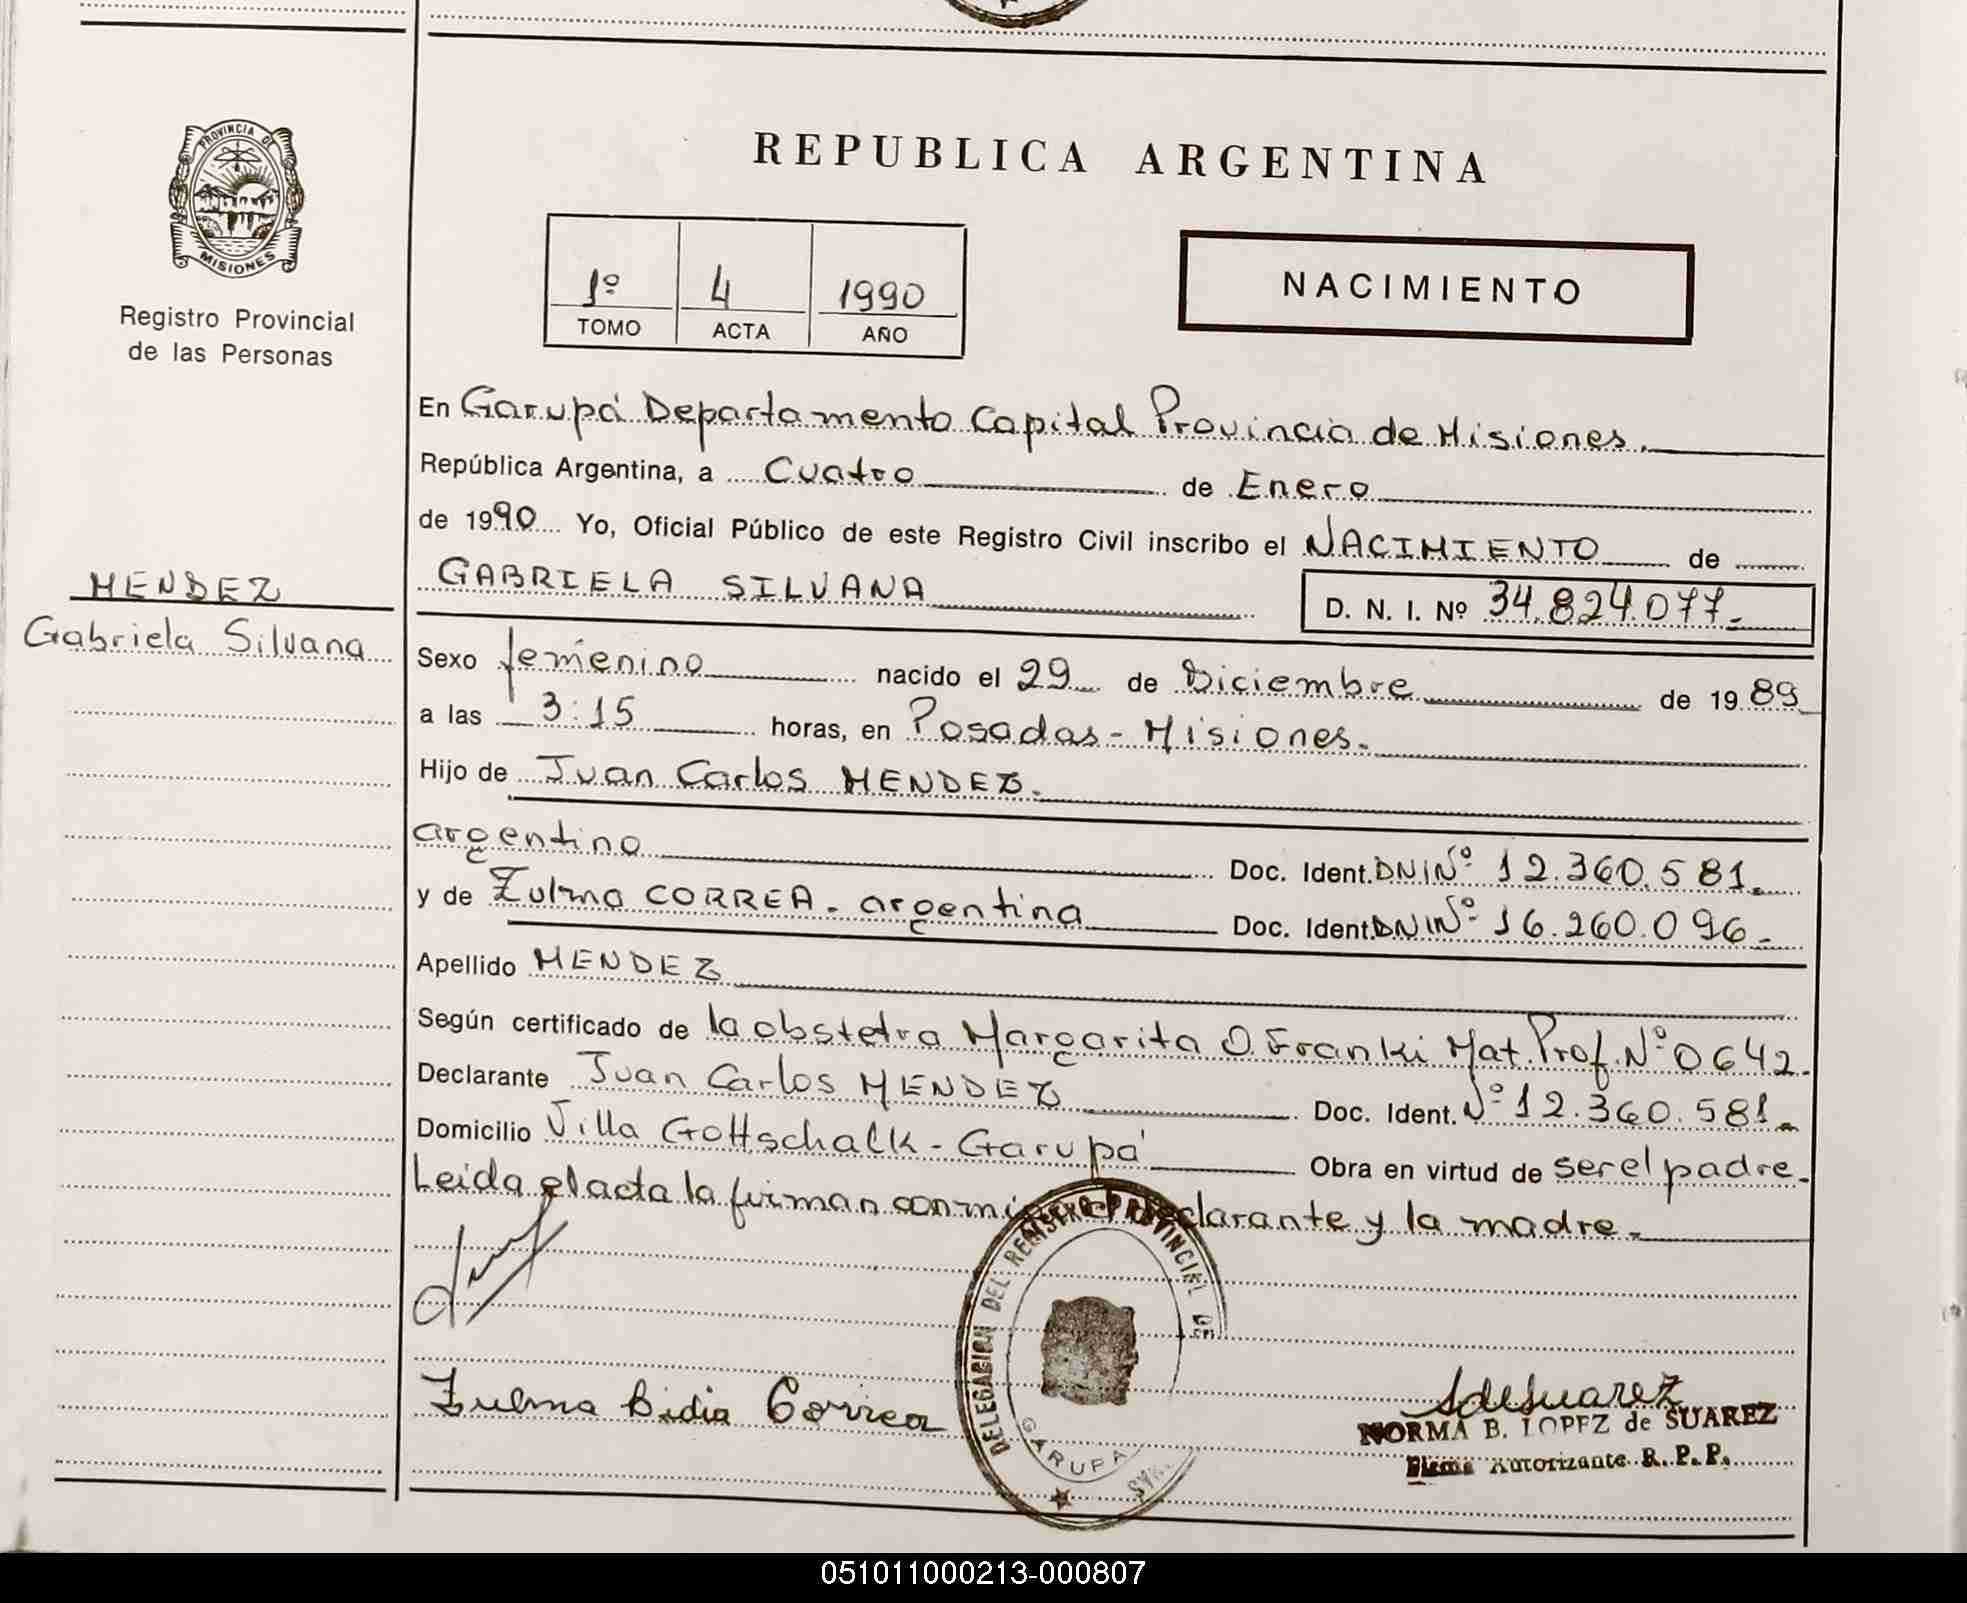 PROVINCIA DE
MISIONES
Registro Provincial
de las Personas
MENDEZ
Gabriela Silvana
REPUBLICA ARGENTINA
1º 4 1990
TOMO ACTA AÑO
NACIMIENTO
En Garupá Departamento Capital Provincia de Misiones.
República Argentina, a Cuatro de Enero
de 1990 Yo, Oficial Público de este Registro Civil inscribo el NACIMIENTO de
GABRIELA SILVANA D. N. I. Nº 34.824.077.-
Sexo femenino nacido el 29 de Diciembre de 1989
a las 3:15 horas, en Posadas - Misiones.
Hijo de Juan Carlos MENDEZ.
argentino Doc. Ident. DNI Nº 12.360.581.
y de Zulma CORREA - argentina Doc. Ident. DNI Nº 16.260.096.-
Apellido MENDEZ
Según certificado de la obstetra Margarita O. Franki Mat. Prof. Nº 0642.
Declarante Juan Carlos MENDEZ Doc. Ident. Nº 12.360.581.
Domicilio Villa Gottschalk - Garupá Obra en virtud de ser el padre.
Leida el acta la firman conmigo el declarante y la madre.-
DELEGACION DEL REGISTRO PROVINCIAL DE
GARUPA
Zulma Lidia Correa
SdeSuarez
NORMA B. LOPEZ de SUAREZ
Firma Autorizante R. P. P.
051011000213-000807